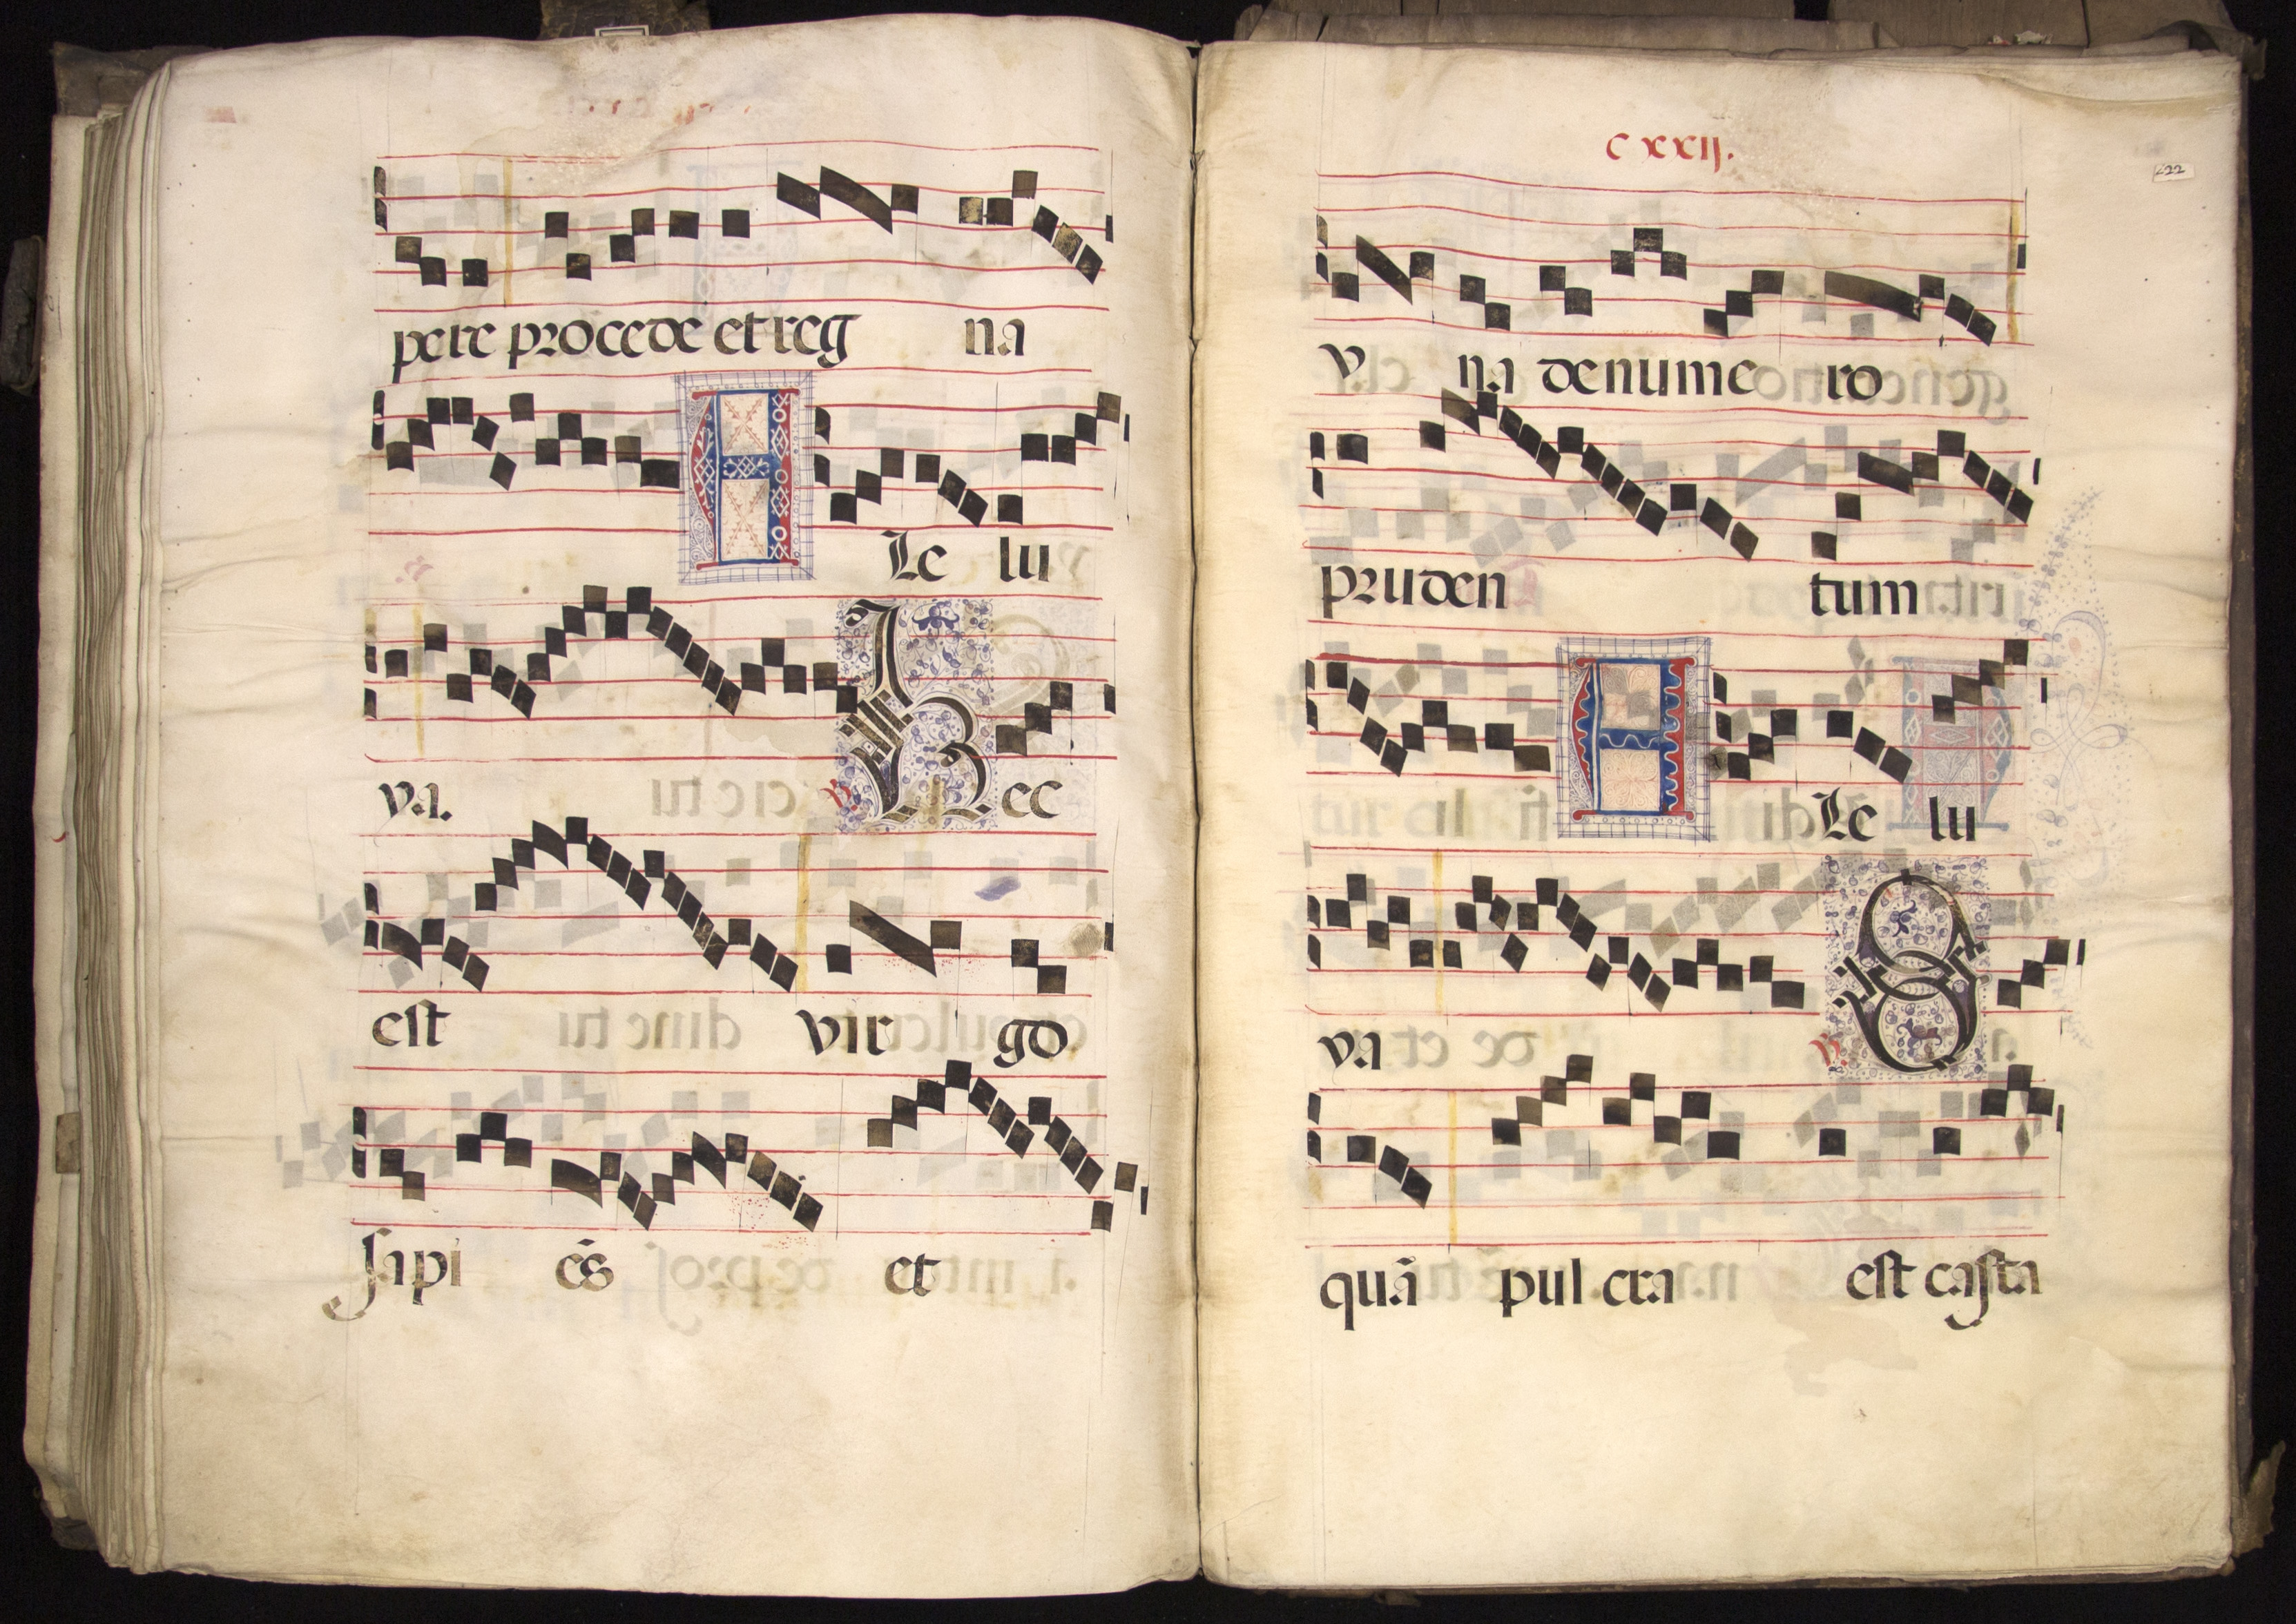 pere procede et reg na
A Le lu
va. V. Hec
est vir go
sapi ẽs et
C xxij.
122
v na de nume ro
pruden tum
A Le lu
va V. O
quã pul cra est casta